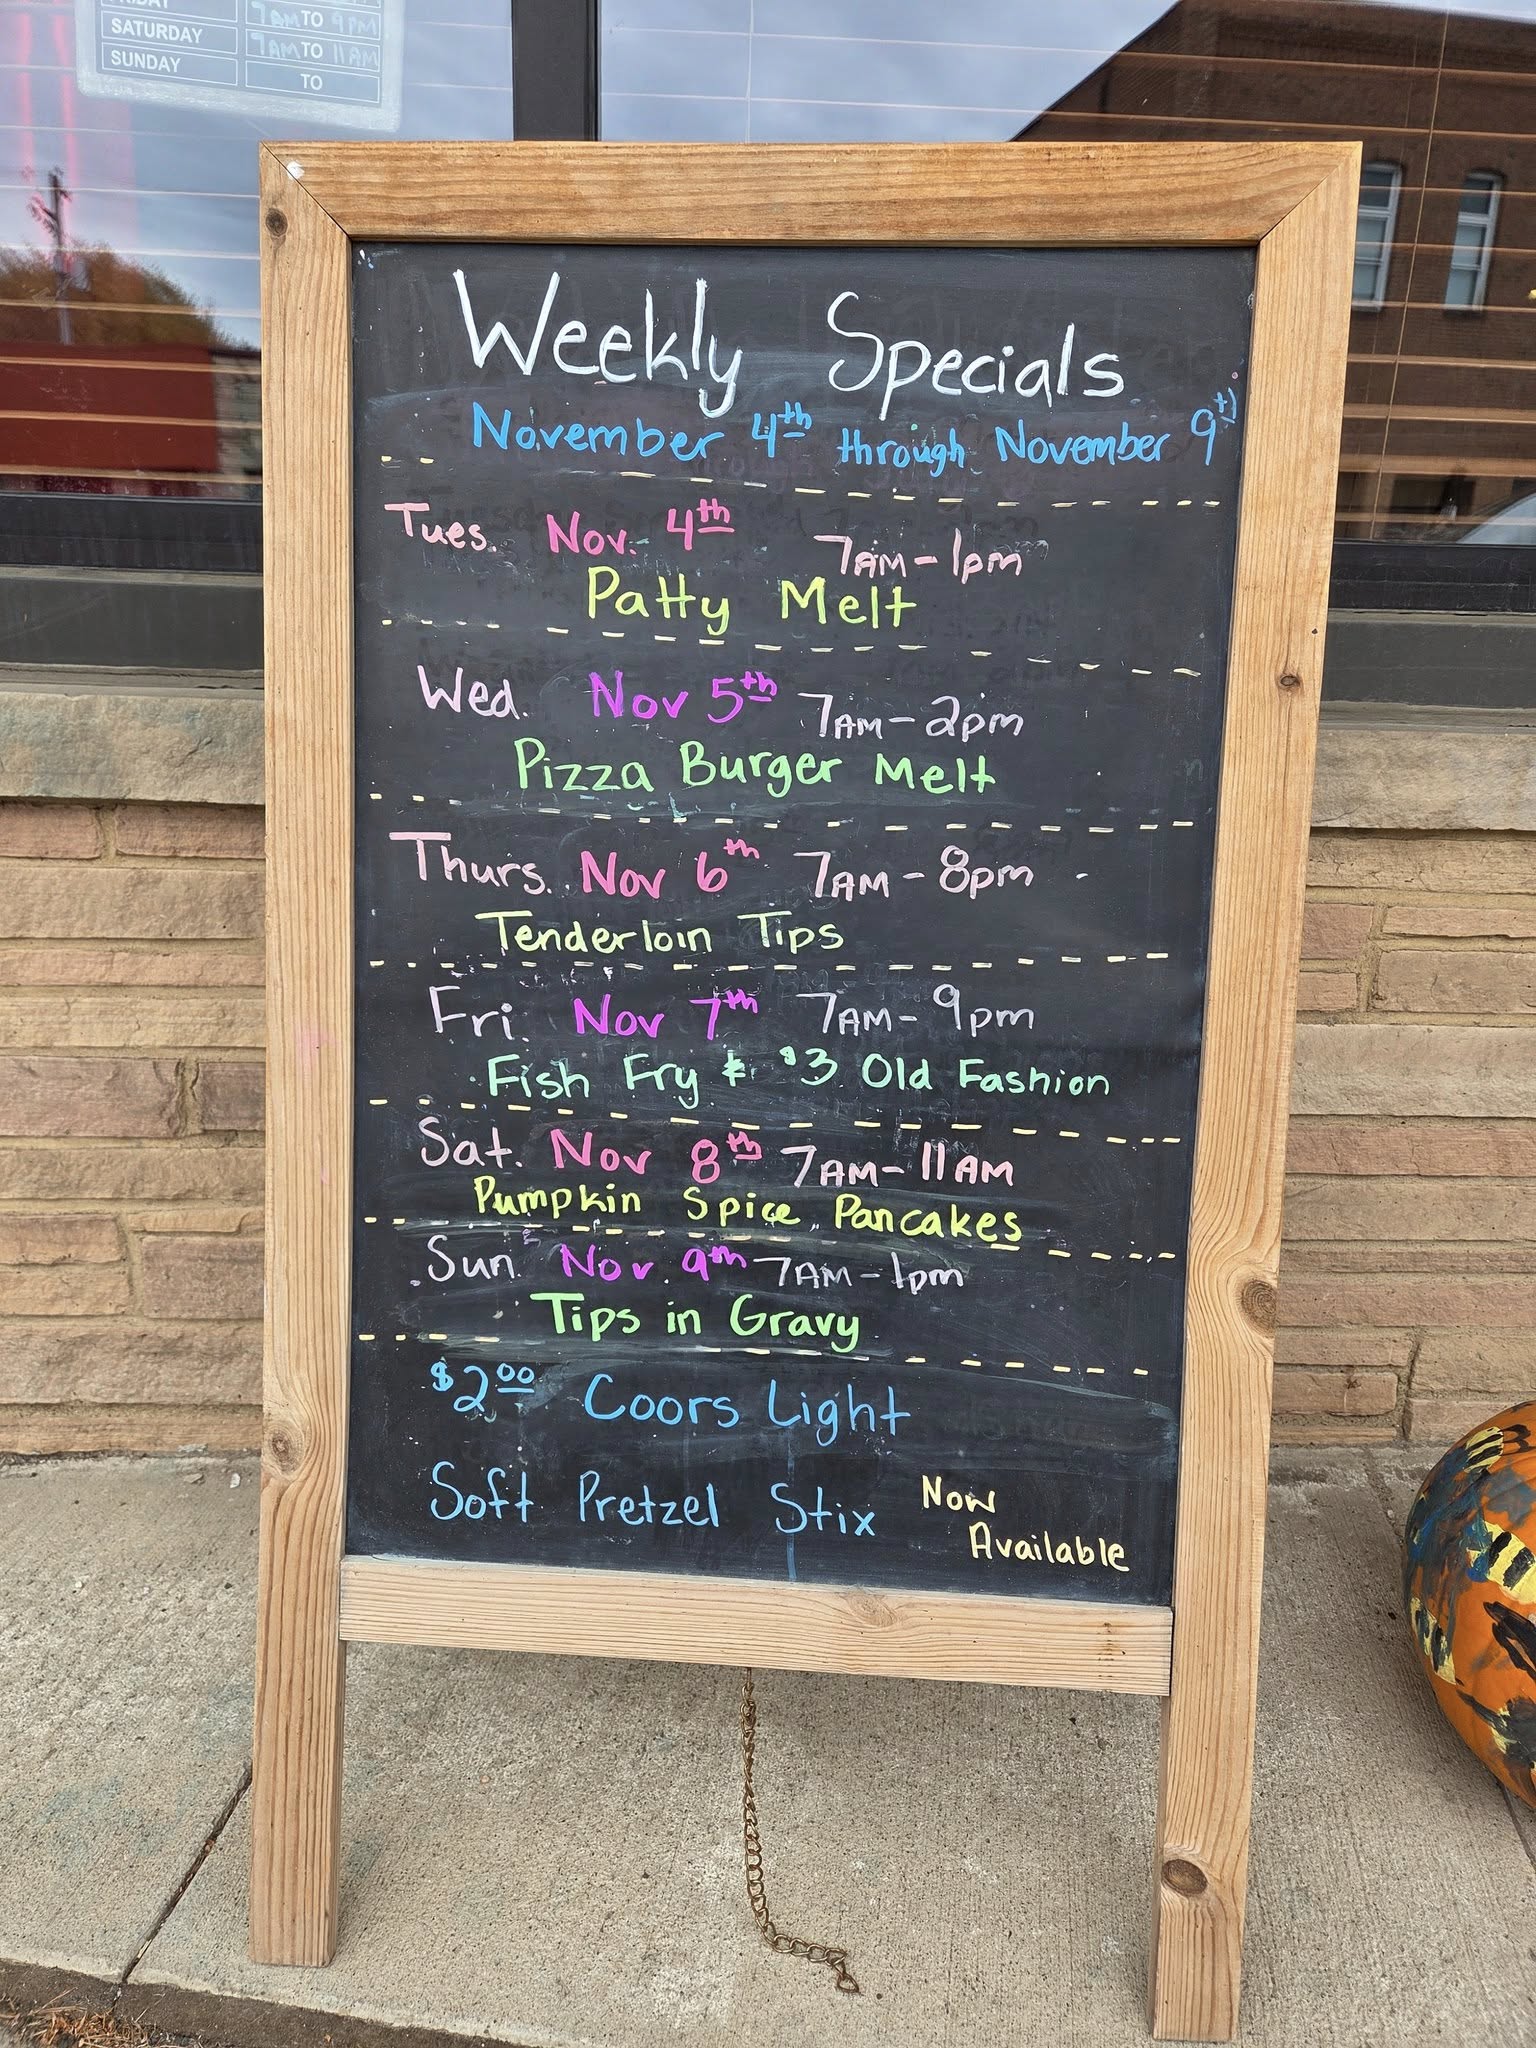 FRIDAY 7AM TO 9PM
SATURDAY 7AM TO 11AM
SUNDAY TO
Weekly Specials
November 4th through November 9th
Tues. Nov. 4th 7AM - 1pm
Patty Melt
Wed. Nov 5th 7AM - 2pm
Pizza Burger Melt
Thurs. Nov 6th 7AM - 8pm
Tenderloin Tips
Fri. Nov 7th 7AM - 9pm
Fish Fry & $3 Old Fashion
Sat. Nov 8th 7AM - 11AM
Pumpkin Spice Pancakes
Sun. Nov. 9th 7AM - 1pm
Tips in Gravy
$2.00 Coors Light
Soft Pretzel Stix Now
Available